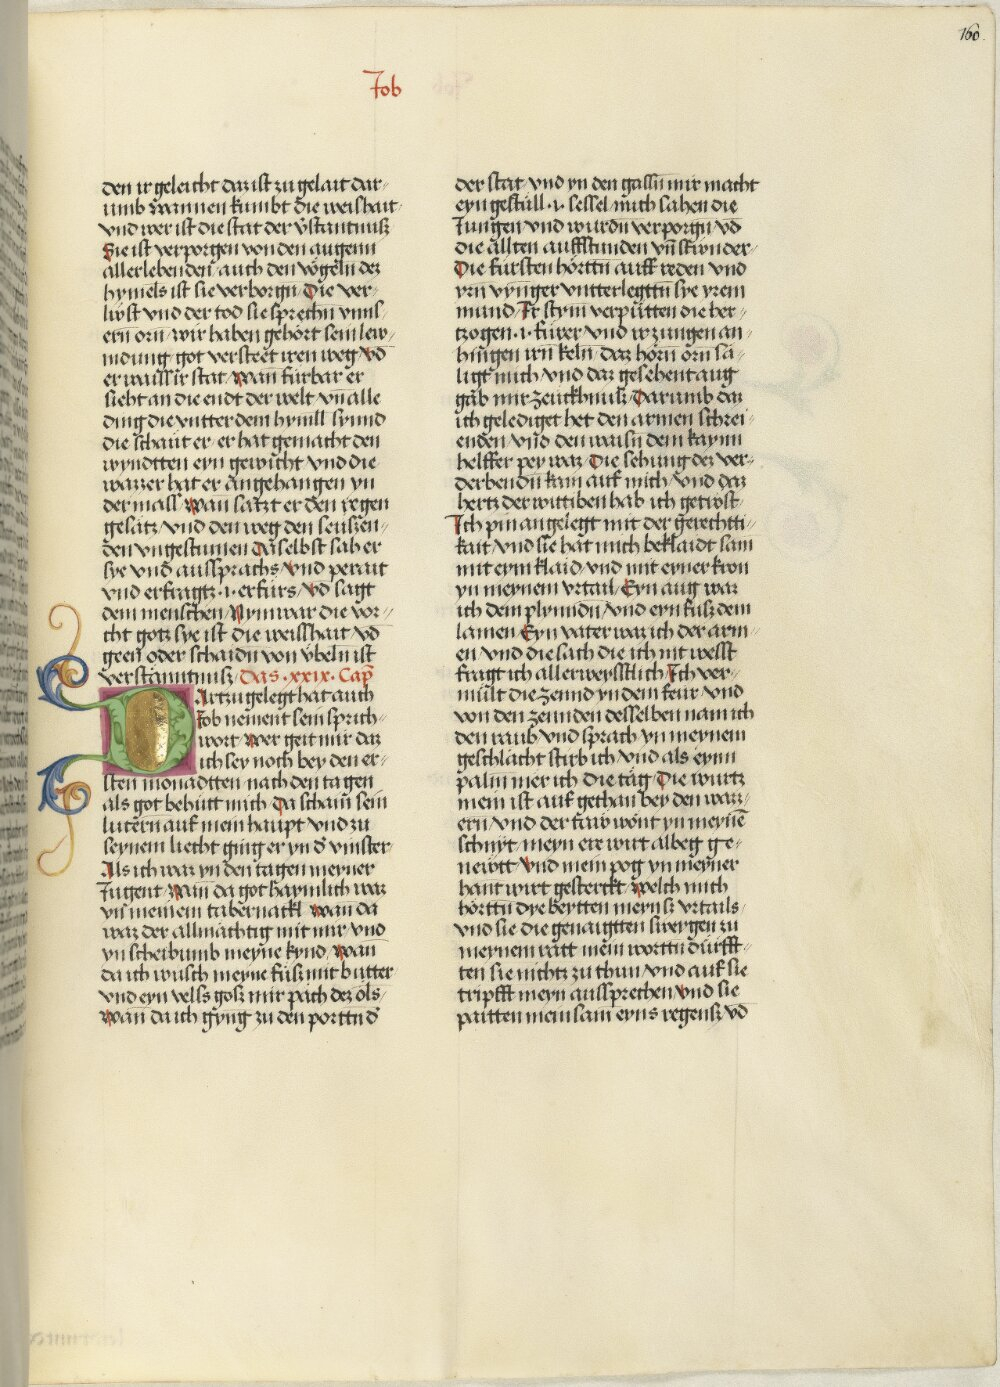 160.
Job
den ir geleicht daz ist zu gelait dar-
umb wannen kumbt die weishait
vnd wer ist die stat der v̄stantnusz
Sie ist verporgen von den augenn
aller lebenden auch den vögeln dez
hymels ist sie verborgn Die ver-
liest vnd der tod sie sprechn vnns-
ern orn wir haben gehört sein lew-
mdung got versteet iren weg vd̄
er waiss ir stat wan fürbar er
sieht an die endt der welt vnd alle
ding die vntter dem hymll synnd
die schaut er er hat gemacht den
wyndtten eyn gewicht vnd die
wazzer hat er angehangen yn
der mass wan satzt er den regen
gesatz vnd den weg den seuszen-
den vngestumen Daselbst sah er
sye vnd aussprachs vnd perait
vnd erfragtz .i. erfurs vd̄ sagt
dem menschen Nym war die vor-
cht gotz sye ist die weisshait vd̄
geen oder schaidn von ubeln ist
verstanntnusz Das .xxix. Cap̄
DArtzu gelegt hat auch
Job nement sein sprich-
wort wer geit mir daz
ich sey noch bey den er-
sten monadtten nach den tagen
als got behütt mich Da schain sein
lutern auf mein haupt vnd zu
seynem liecht ging er yn d̄ vinster
Als ich war yn den tagen meyner
Jugent wan da got haymlich waz
yn meinem tabernackl wan da
waz der allmachtig mit mir vnd
yn scheibumb meyne kynd wan
da ich wusch meyne füsz mit butter
vnd eyn velss gosz mir päch dez öls-
wan da ich gyng zu den porttn d̄
der stat vnd yn den gassn mir macht
eyn gestüll .i. sessel mich sahen die
Jungen vnd wurdn verporgn vd̄
die allten auffstunden vn̄ stunden
Die fürsten hörttn auff reden vnd
yrn vynger vntterlegttn sye yrem
mund Ir stym verpütten die her-
tzogen .i. fürer vnd ir zungen an-
hingen irn keln daz hörn orn sä-
ligt mich vnd daz gesehent aug
gäb mir zeuckhnusz Darumb daz
ich gelediget het den armen schrei-
enden vnd den waisn dem kaynn
helffer pey waz Die sehung dez ver-
derbendn kam auf mich vnd daz
hertz der wittiben hab ich getröst
Ich pin angelegt mit der gerechtti-
kait vnd sie hat mich beklaidt sam
mit eym klaid vnd mit eyner kron
yn meynem vrtail Eyn aug war
ich dem plynndn vnd eyn fusz dem
lamen Eyn vater waz ich der arm-
en vnd die sach die ich nit wesst
fragt ich allerweysstlich Ich zer-
mült die zennd yn dem feur vnd
von den zennden desselben nam ich
den raub vnd sprach yn meynem
geschlächt stirb ich vnd als eynn
palm mer ich die täg Die wurtz
mein ist auf gethan bey den waz-
ern vnd der taw wont yn meynē
schnyt meyn ere wirt albeg ge-
newtt vnd mein pog yn meyner
hant wirt gesterckt welch mich
hörttn dye beytten meyns vrtails
vnd sie die genaigtten swergen zu
meynem rätt mein worttn dürfft-
ten sie nichtz zu thun vnd auf sie
tripfft meyn aussprechen vnd sie
paitten mein sam eyns regensz vd̄